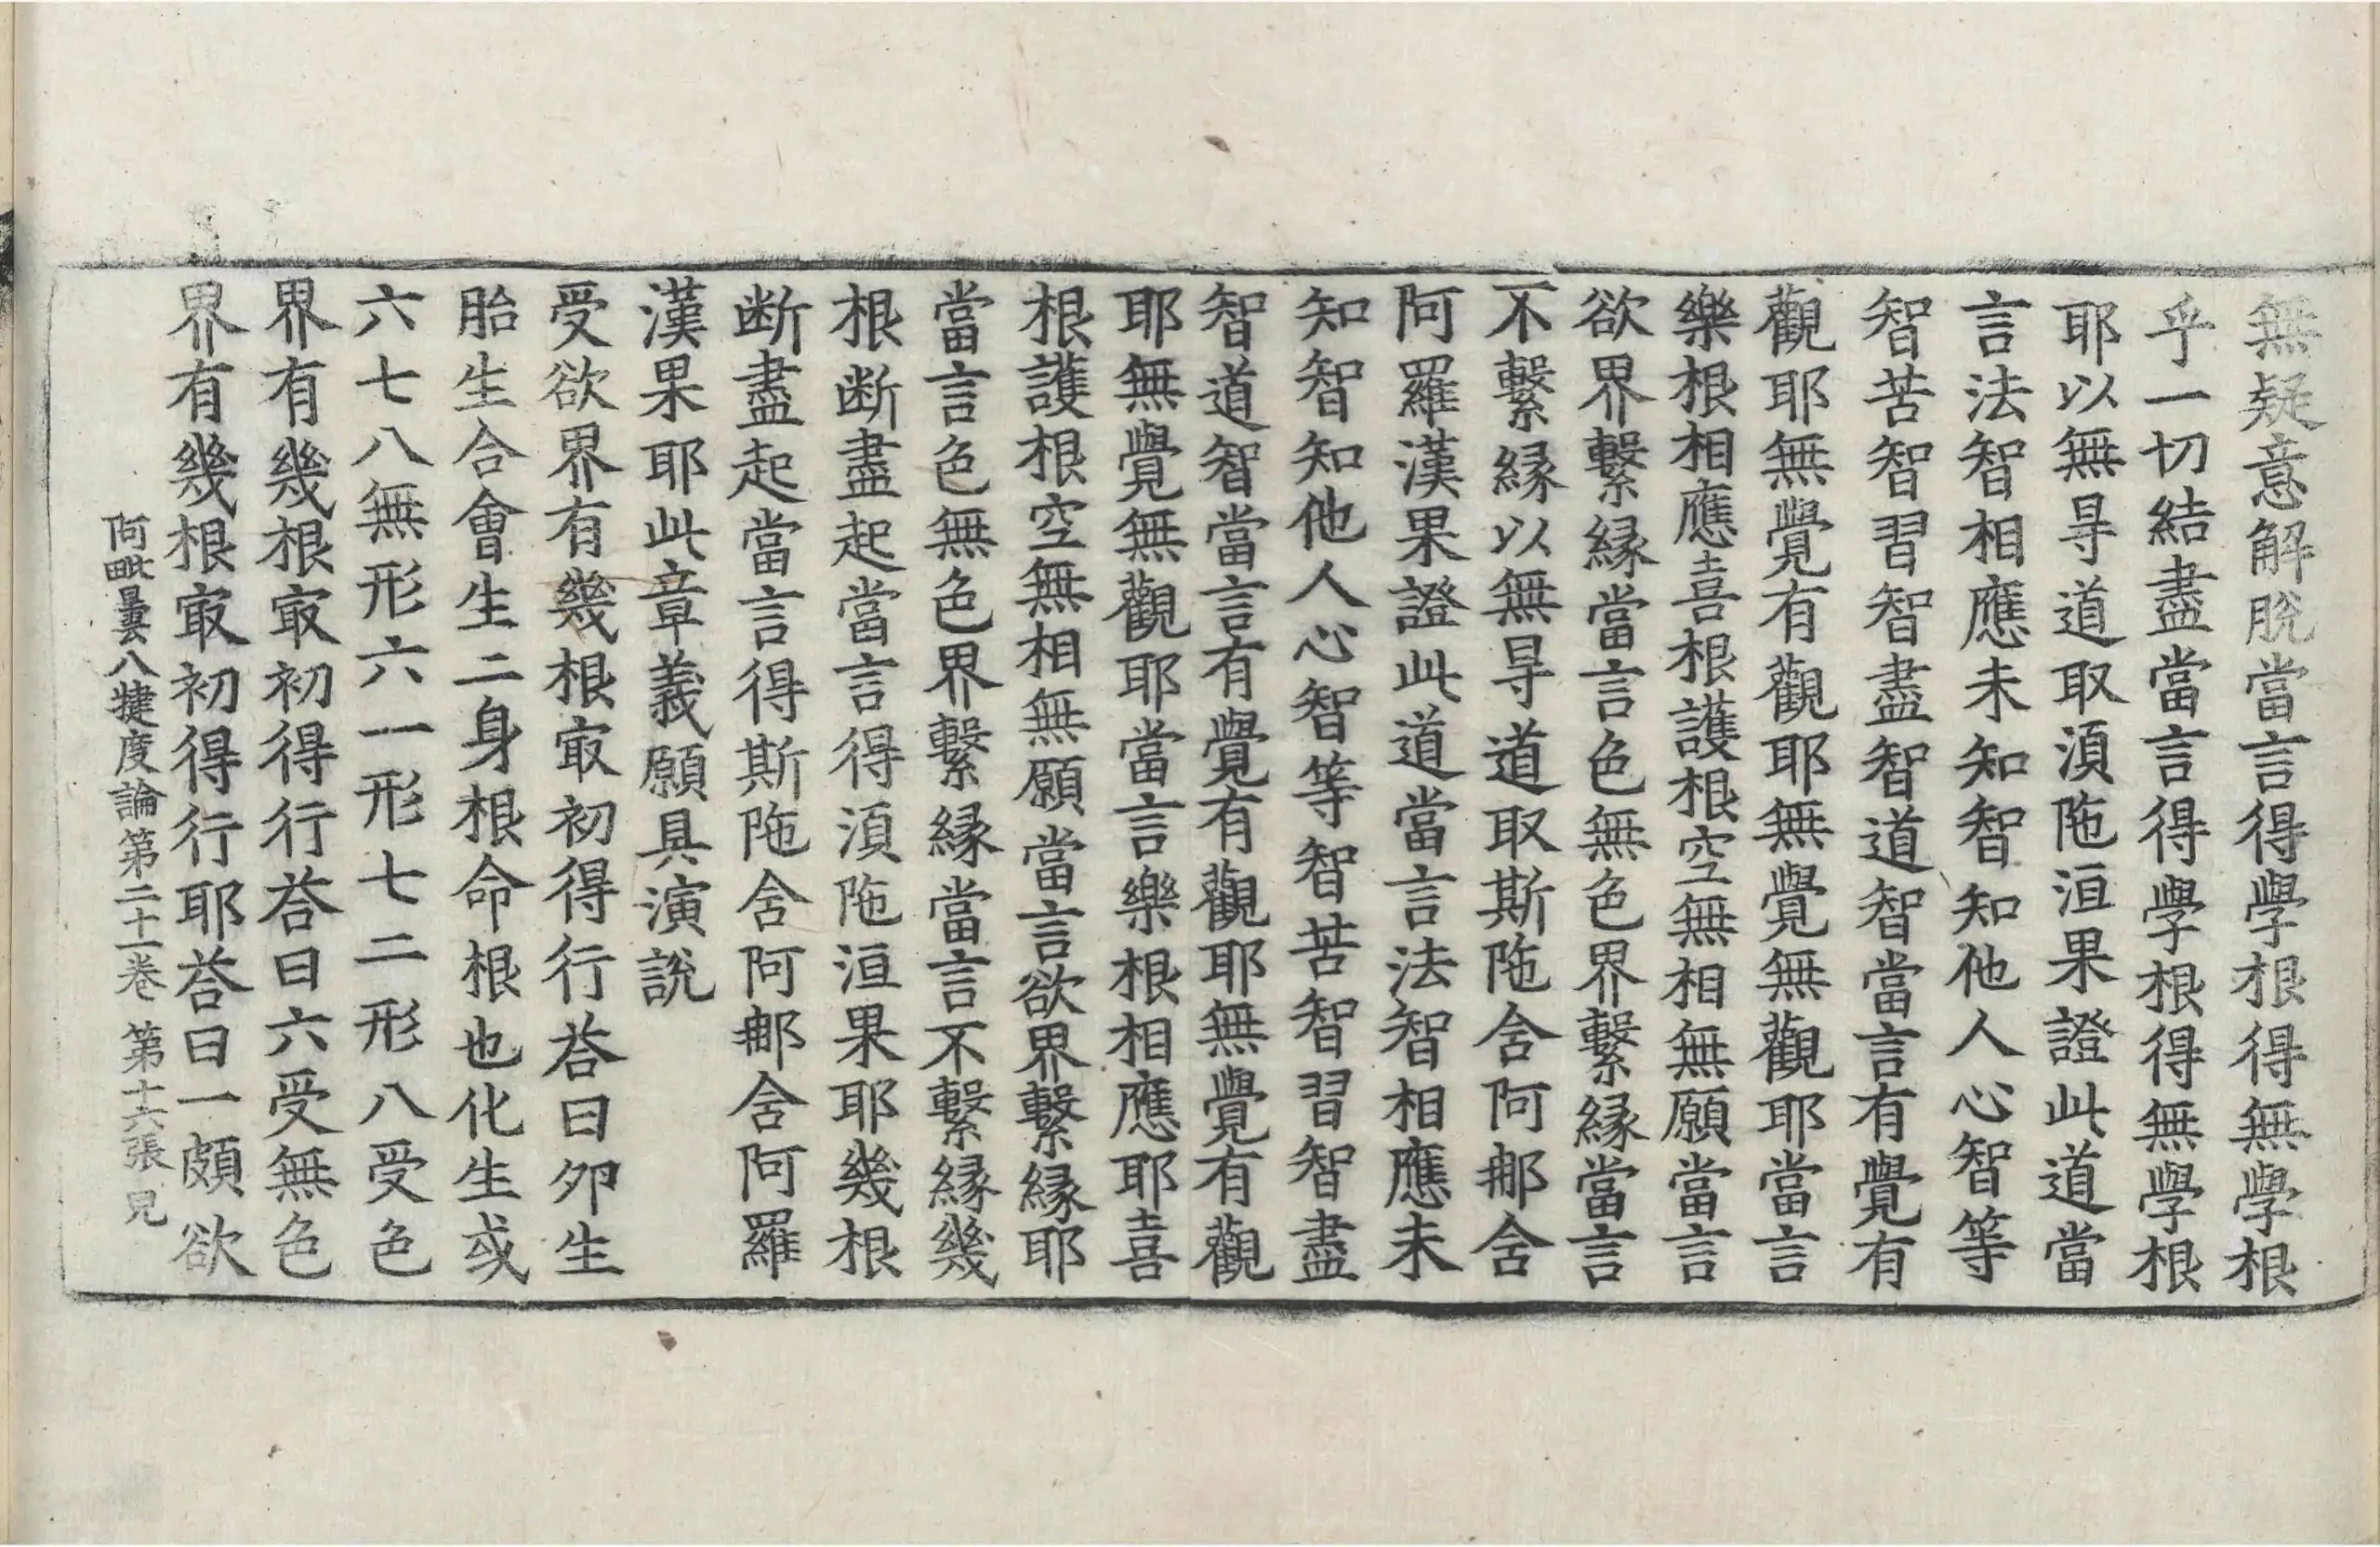 無疑意解脫當言得學根得無學根
乎一切結盡當言得學根得無學根
耶以無㝵道取湏陁洹果證此道當
言法智相應未知智知他人心智等
智苦智習智盡智道智當言有覺有
觀耶無覺有觀耶無覺無觀耶當言
樂根相應喜根護根空無相無願當言
欲界繫縁當言色無色界繫縁當言
不繫縁以無㝵道取斯陁含阿郍含
阿羅漢果證此道當言法智相應未
知智知他人心智等智苦智習智盡
智道智當言有覺有觀耶無覺有觀
耶無覺無觀耶當言樂根相應耶喜
根護根空無相無願當言欲界繫縁耶
當言色無色界繫縁當言不繫縁幾
根断盡起當言得湏陁洹果耶幾根
断盡起當言得斯陁含阿郍含阿羅
漢果耶此章義願具演說
受欲界有幾根㝡初得行荅曰夘生
胎生合會生二身根命根也化生或
六七八無形六一形七二形八受色
界有幾根㝡初得行荅曰六受無色
界有幾根㝡初得行耶荅曰一頗欲
阿毗曇八揵度論第二十一卷 第十六張 見